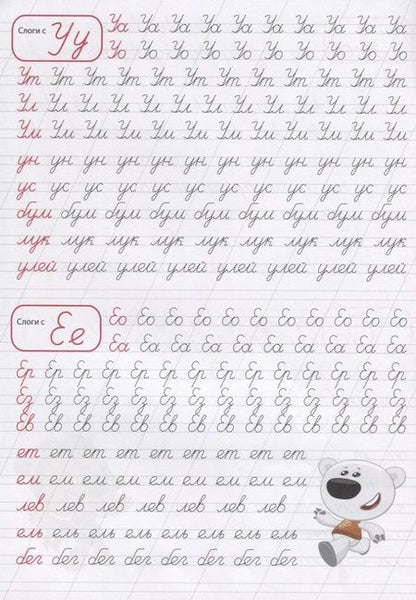 Слоги с Уу
Уа Уа Уа Уа Уа Уа Уа Уа Уа
Уо Уо Уо Уо Уо Уо Уо Уо Уо
Ут Ут Ут Ут Ут Ут Ут Ут Ут Ут Ут
Ул Ул Ул Ул Ул Ул Ул Ул Ул Ул Ул Ул
Ум Ум Ум Ум Ум Ум Ум Ум Ум Ум
ун ун ун ун ун ун ун ун ун ун ун ун
ус ус ус ус ус ус ус ус ус ус ус ус
бум бум бум бум бум бум бум бум бум
лук лук лук лук лук лук лук лук лук
улей улей улей улей улей улей улей улей
Слоги с Ее
Ео Ео Ео Ео Ео Ео Ео Ео Ео Ео Ео
Еа Еа Еа Еа Еа Еа Еа Еа Еа Еа
Ер Ер Ер Ер Ер Ер Ер Ер Ер Ер Ер Ер Ер
Ез Ез Ез Ез Ез Ез Ез Ез Ез Ез Ез Ез Ез
Ев Ев Ев Ев Ев Ев Ев Ев Ев Ев Ев Ев Ев
ет ет ет ет ет ет ет ет ет
ем ем ем ем ем ем ем ем ем
лев лев лев лев лев лев лев
ель ель ель ель ель ель ель ель
бег бег бег бег бег бег бег бег